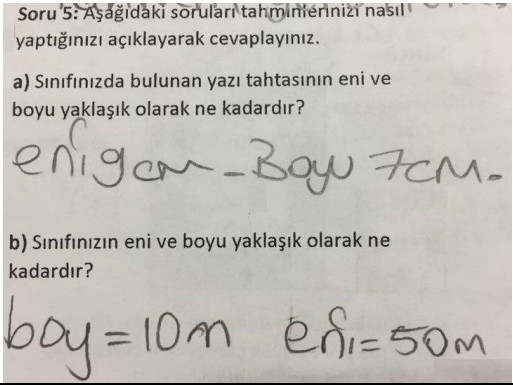 Soru 5: Aşağıdaki soruları tahminlerinizi nasıl
yaptığınızı açıklayarak cevaplayınız.
a) Sınıfınızda bulunan yazı tahtasının eni ve
boyu yaklaşık olarak ne kadardır?
eni 9 cm - Boyu 7cm.
b) Sınıfınızın eni ve boyu yaklaşık olarak ne
kadardır?
boy = 10 m eni = 50 m